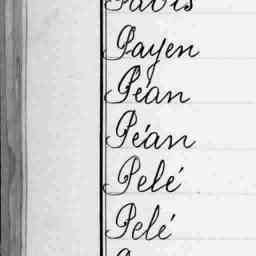 Payen
Péan
Péan
Pelé
Pelé